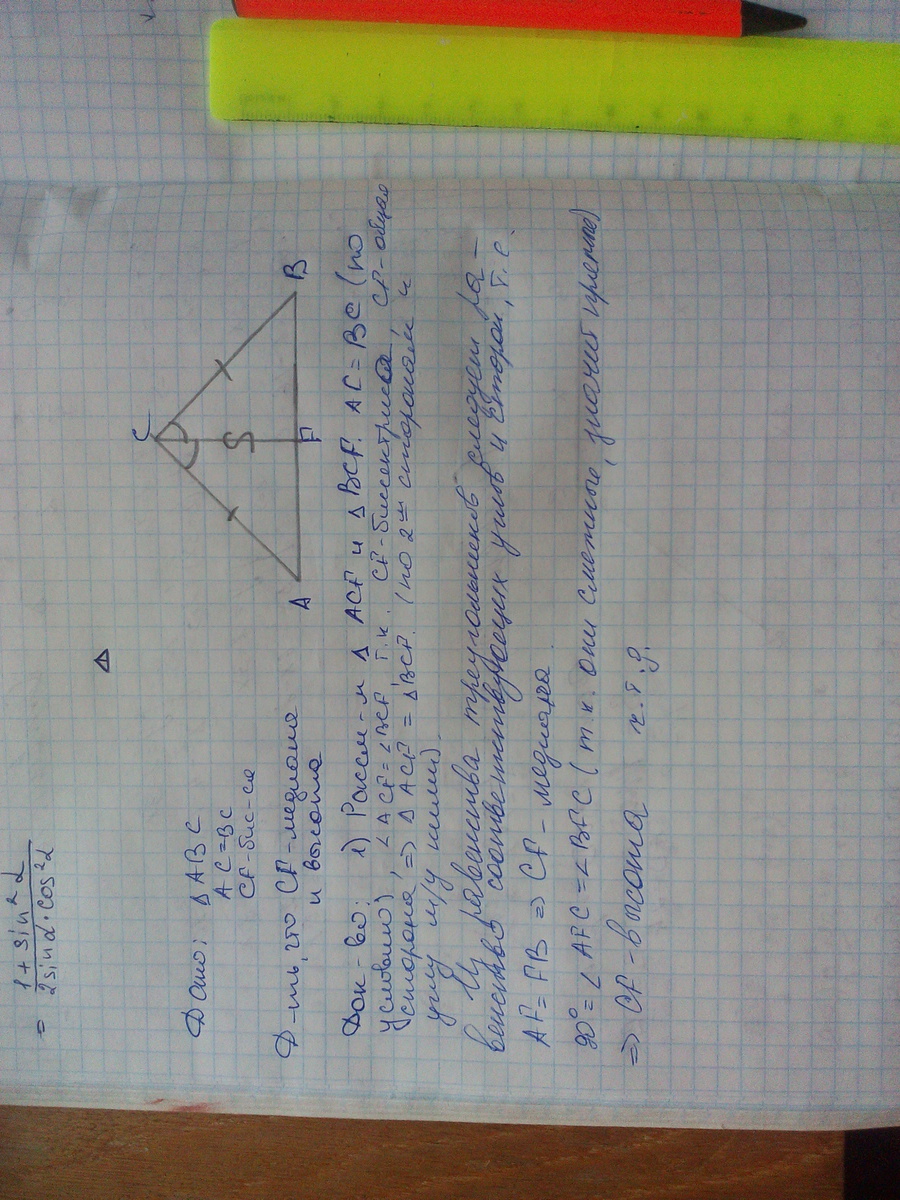 = 1 + sin²α / 2sinα·cos²α
Δ
Дано: Δ ABC
AC=BC
CF-бис-са
Д-ть, что CF-медиана
и высота
C
A
F
B
Док-во: 1) Рассм-м Δ ACF и Δ BCF. AC=BC (по
условию), ∠ACF=∠BCF, т.к. CF-биссектриса, CF-общая
сторона, => Δ ACF = ΔBCF. (по 2-м сторонам и
углу м/у ними).
Из равенства треугольников следует ра-
венство соответствующих углов и сторон, т.е.
AF=FB => CF- медиана.
90°=∠AFC=∠BFC (т.к. они смежные, значит прямые)
=> CF-высота ч.т.д.